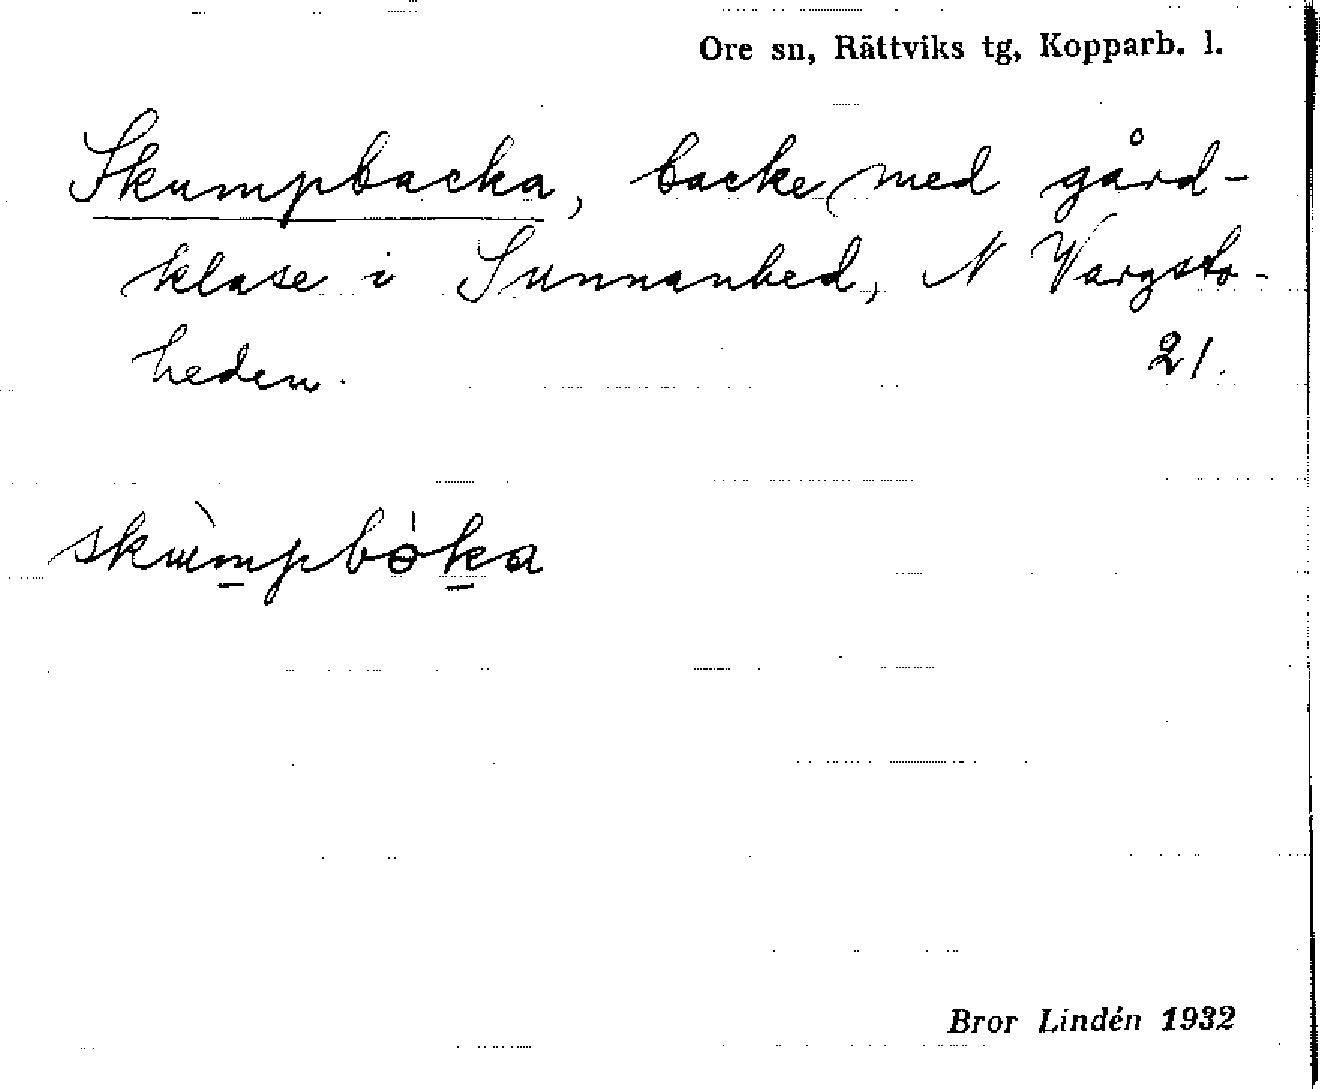 Ore sn, Rättviks tg, Kopparb. l.
Skumpbacka, backe med gård-
klase i Sunnanhed, N Vargsto-
heden. 21.
skùmpbɵ̀ka
Bror Lindén 1932